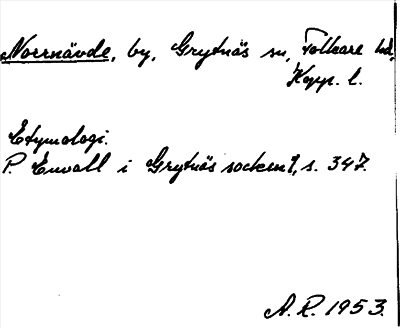 Norrnävde, by, Grytnäs sn, Folkare hd,
Kopp. l.
Etymologi.
P. Envall i Grytnäs socken 1, s. 347.
A.R. 1953.